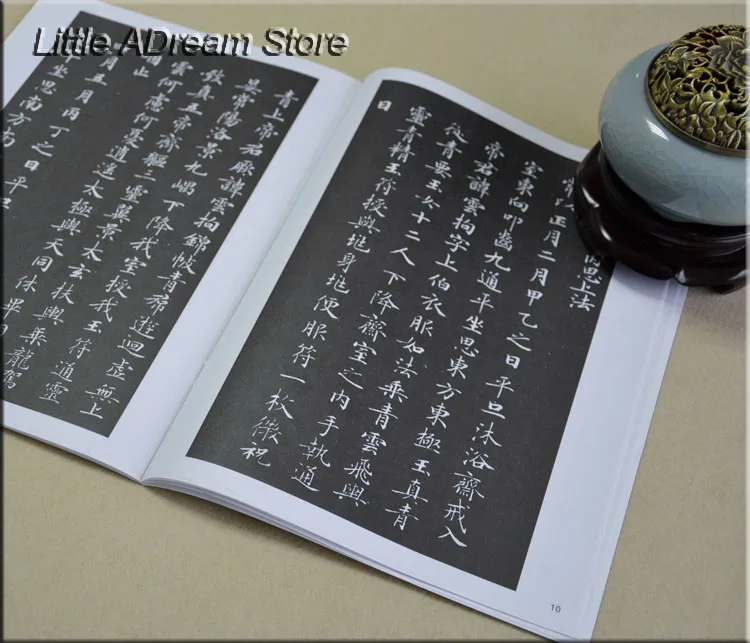 Little ADream Store
內思上法
正月二月甲乙之日平旦沐浴齋戒入
室東向叩齒九通平坐思東方東極玉真青
帝君諱雲拘字上伯衣服如法乘青雲飛輿
從青要玉女十二人下降齋室之內手執通
靈青精玉符授與兆身兆便服符一枚微祝
曰
10
青上帝君厥諱雲拘錦帔青帬遊迴虛無上
晏常陽洛景九嵎下降我室授我玉符通靈
致真五帝齊軀三靈翼景太玄扶輿乘龍駕
雲何慮何憂遨遊太極與天同休畢因
止
月五月丙丁之日平旦
平坐思南方南